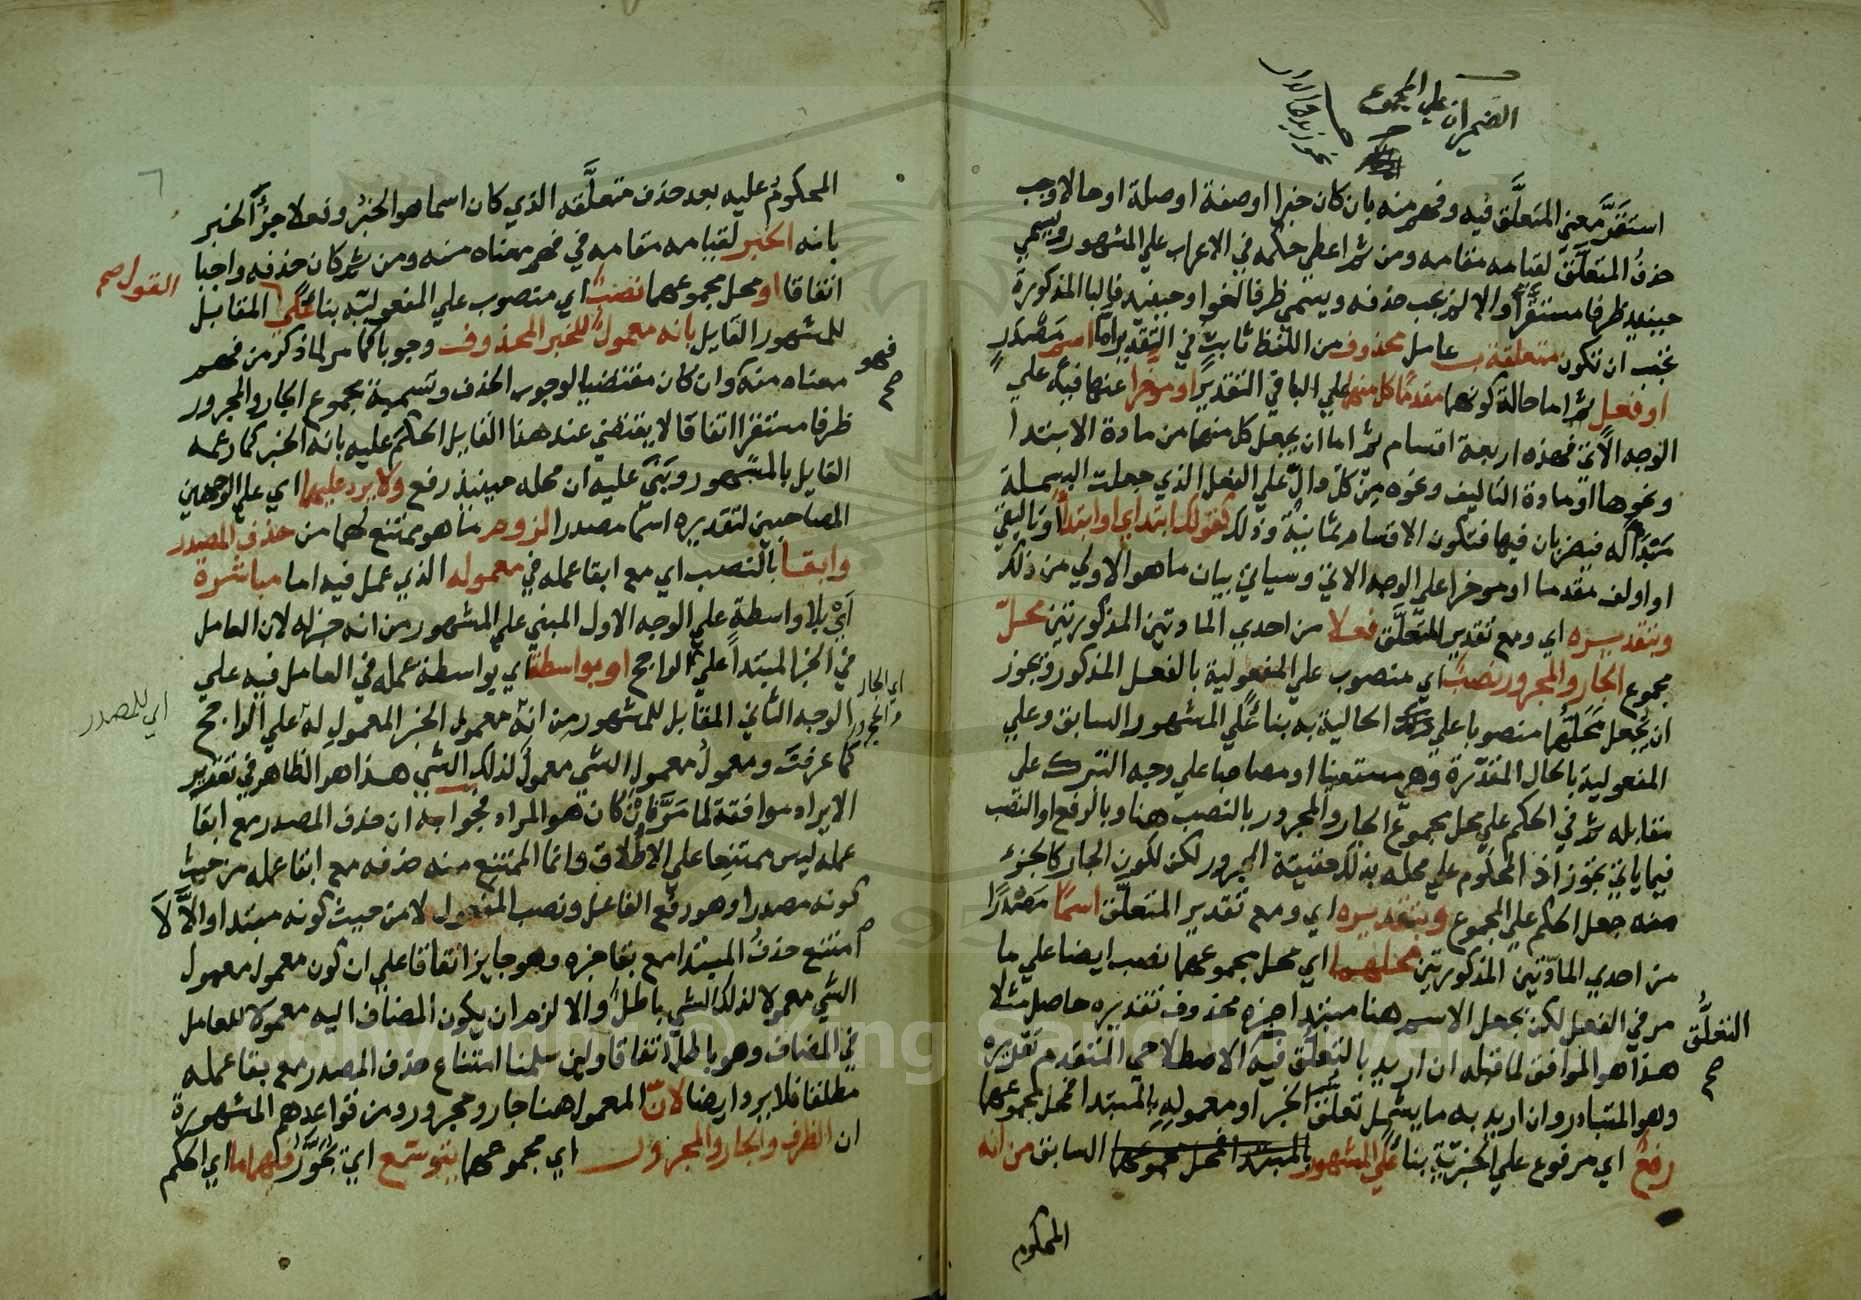 الضميران علي المجموع
استَقَرَّ معني المتعلَّق فيه وفهم منه بان كان خبرا اوصفة اوصلة اوحالا وجب
حذف المتعلَّق لقيامه مقامه ومن ثم اعطي حكمه في الاعراب علي المشهور ويسمي
حينيد ظرفا مستقرًّا والا لم يجب حذفه ويسمي ظرفا لغوا وحينيد فالبا المذكورة
يجب ان تكون متعلقة ب عامل محذوف من اللفظ ثابت في التقدير اما اسم مصدر
او فعل ثم اما حالة كونهما مقدمًا كل منهما علي البا في التقدير او موخرا عنها فيه علي
الوجه الاتي فهذه اربعة اقسام ثم اما ان يجعل كل منهما من مادة الابتدا
ونحوها او مادة التاليف ونحوه من كل دال علي الفعل الذي جعلت البسملة
مبتدأ له فيضربان فيها فتكون الاقسام ثمانية وذلك كقولك ابتداي او ابتدأ او تاليفي
او اولف مقدما او موخرا علي الوجه الاتي وسياتي بيان ما هو الاولي من ذلك
وبتقديره اي ومع تقدير المتعلَّق فعلا من احدي المادتين المذكورتين محل
مجموع الجار والمجرور نصب اي منصوب علي المفعولية بالفعل المذكور ويجوز
ان يجعل محلهما منصوبا علي الحالية به بناء علي المشهور السابق وعلي
المفعولية بالحال المقدرة وهي مستعينا او مصاحبا علي وجه التبرك علي
مقابله ثم في الحكم علي محل مجموع الجار والمجرور بالنصب هنا وبالرفع او النصب
فيما ياتي تجوّز اذ المحكوم علي محله بذلك حقيقة المجرور لكن لكون الجار كالجزء
منه جعل الحكم علي المجموع وبتقديره اي ومع تقدير المتعلَّق اسما مصدرًا
من احدي المادّتين المذكورتين محلهما اي محل مجموعهما نصب ايضا علي ما
مر في الفعل لكن بجعل الاسم هنا مبتدا خبره محذوف تقديره حاصل مثلا
هذا هو الموافق لما قبله ان اريد بالتعلُّق فيه الاصطلاحي المتقدم تقديره
التعلُّق صح
وهو المتبادر وان اريد به ما يشمل تعلق الخبر او معموله بالمبتدا فمحل مجموعهما
رفع اي مرفوع علي الخبرية بناء علي المشهور بالمبتدا فمحل مجموعهما السابق من انه
المحكوم
المحكوم عليه بعد حذف متعلَّقه الذي كان اسما هو الخبر وفعلا جزء الخبر
بانه الخبر لقيامه مقامه في فهم معناه منه ومن ثم كان حذفه واجبا
اتفاقا او محل مجموعهما نصب اي منصوب علي المفعولية بنا علي المقابل
القول صح
للمشهور القايل بانه معمول للخبر المحذوف وجوبا كما مر لما ذكر من فهم
فهو صح
معناه منه وان كان مقتضيا لوجوب الحذف وتسمية مجموع الجار والمجرور
ظرفا مستقرا اتفاقا لا يقتضي عند هذا القايل الحكم عليه بانه الخبر كما زعمه
القايل بالمشهور وبني عليه ان محله حينيذ رفع ولا يرد عليهما اي علي الوجهين
المصاحبين لتقديره اسما مصدرا لزوم ما هو ممتنع لهما من حذف المصدر
وابقا بالنصب اي مع ابقا عمله في معموله الذي عمل فيه اما مباشرة
اي بلا واسطة علي الوجه الاول المبني علي المشهور من انه خبر له لان العامل
في الخبر المبتدا علي الراجح او بواسطة اي بواسطة عمله في العامل فيه علي
اي الجار والمجرور
اي للمصدر
الوجه الثاني المقابل للمشهور من انه معمول الخبر المعمول له علي الراجح
كما عرفت ومعمول معمول الشي معمول لذلك الشي هذا هو الظاهر في تقدير
الايراد موافقة لما مَرَّ فان كان هو المراد فجوابه ان حذف المصدر مع ابقا
عمله ليس ممتنعا علي الاطلاق وانما الممتنع منه حذفه مع ابقا عمله من حيث
كونه مصدرا وهو رفع الفاعل ونصب المفعول لا من حيث كونه مبتدا والا لا
امتنع حذف المبتدا مع بقا خبره وهو جايز اتفاقا علي ان كون معمول معمول
الشي معمولا لذلك الشي باطل والا لزم ان يكون المضاف اليه معمولا للعامل
في المضاف وهو باطل اتفاقا ولين سلمنا امتناع حذف المصدر مع بقا عمله
مطلقا فلا يرد ايضا لان المعمول هنا جار ومجرور ومن قواعدهم المشهورة
ان الظرف والجار والمجرور اي مجموعهما يتوسّع اي يُتجوَّز فيهما ما اي الحكم
Copyright © King Saud University